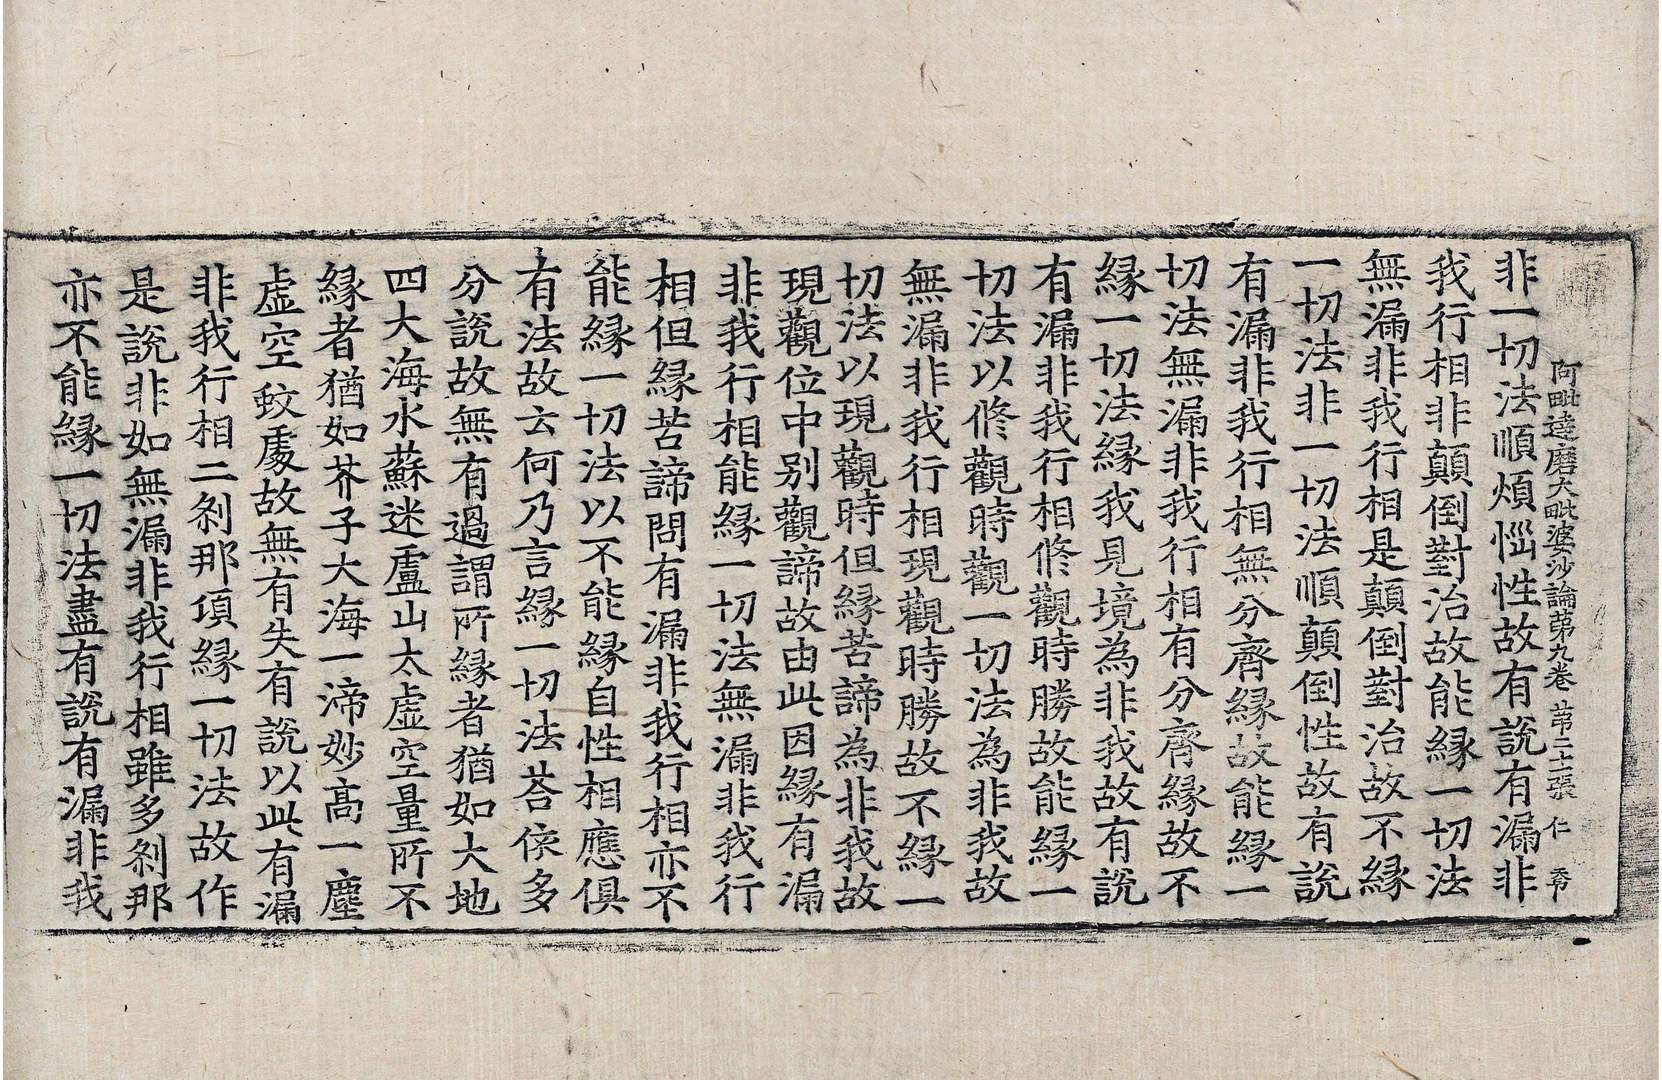 阿毗達磨大毗婆沙論第九卷 第二十張 仁
非一切法順煩惱性故有說有漏非
我行相非顛倒對治故能緣一切法
無漏非我行相是顛倒對治故不緣
一切法非一切法順顛倒性故有說
有漏非我行相無分齊緣故能緣一
切法無漏非我行相有分齊緣故不
緣一切法緣我見境為非我故有說
有漏非我行相修觀時勝故能緣一
切法以修觀時觀一切法為非我故
無漏非我行相現觀時勝故不緣一
切法以現觀時但緣苦諦為非我故
現觀位中別觀諦故由此因緣有漏
非我行相能緣一切法無漏非我行
相但緣苦諦問有漏非我行相亦不
能緣一切法以不能緣自性相應俱
有法故云何乃言緣一切法荅依多
分說故無有過謂所緣者猶如大地
四大海水蘇迷盧山太虛空量所不
緣者猶如芥子大海一渧妙高一塵
虛空蚊處故無有失有說以此有漏
非我行相二刹那頃緣一切法故作
是說非如無漏非我行相雖多刹那
亦不能緣一切法盡有說有漏非我